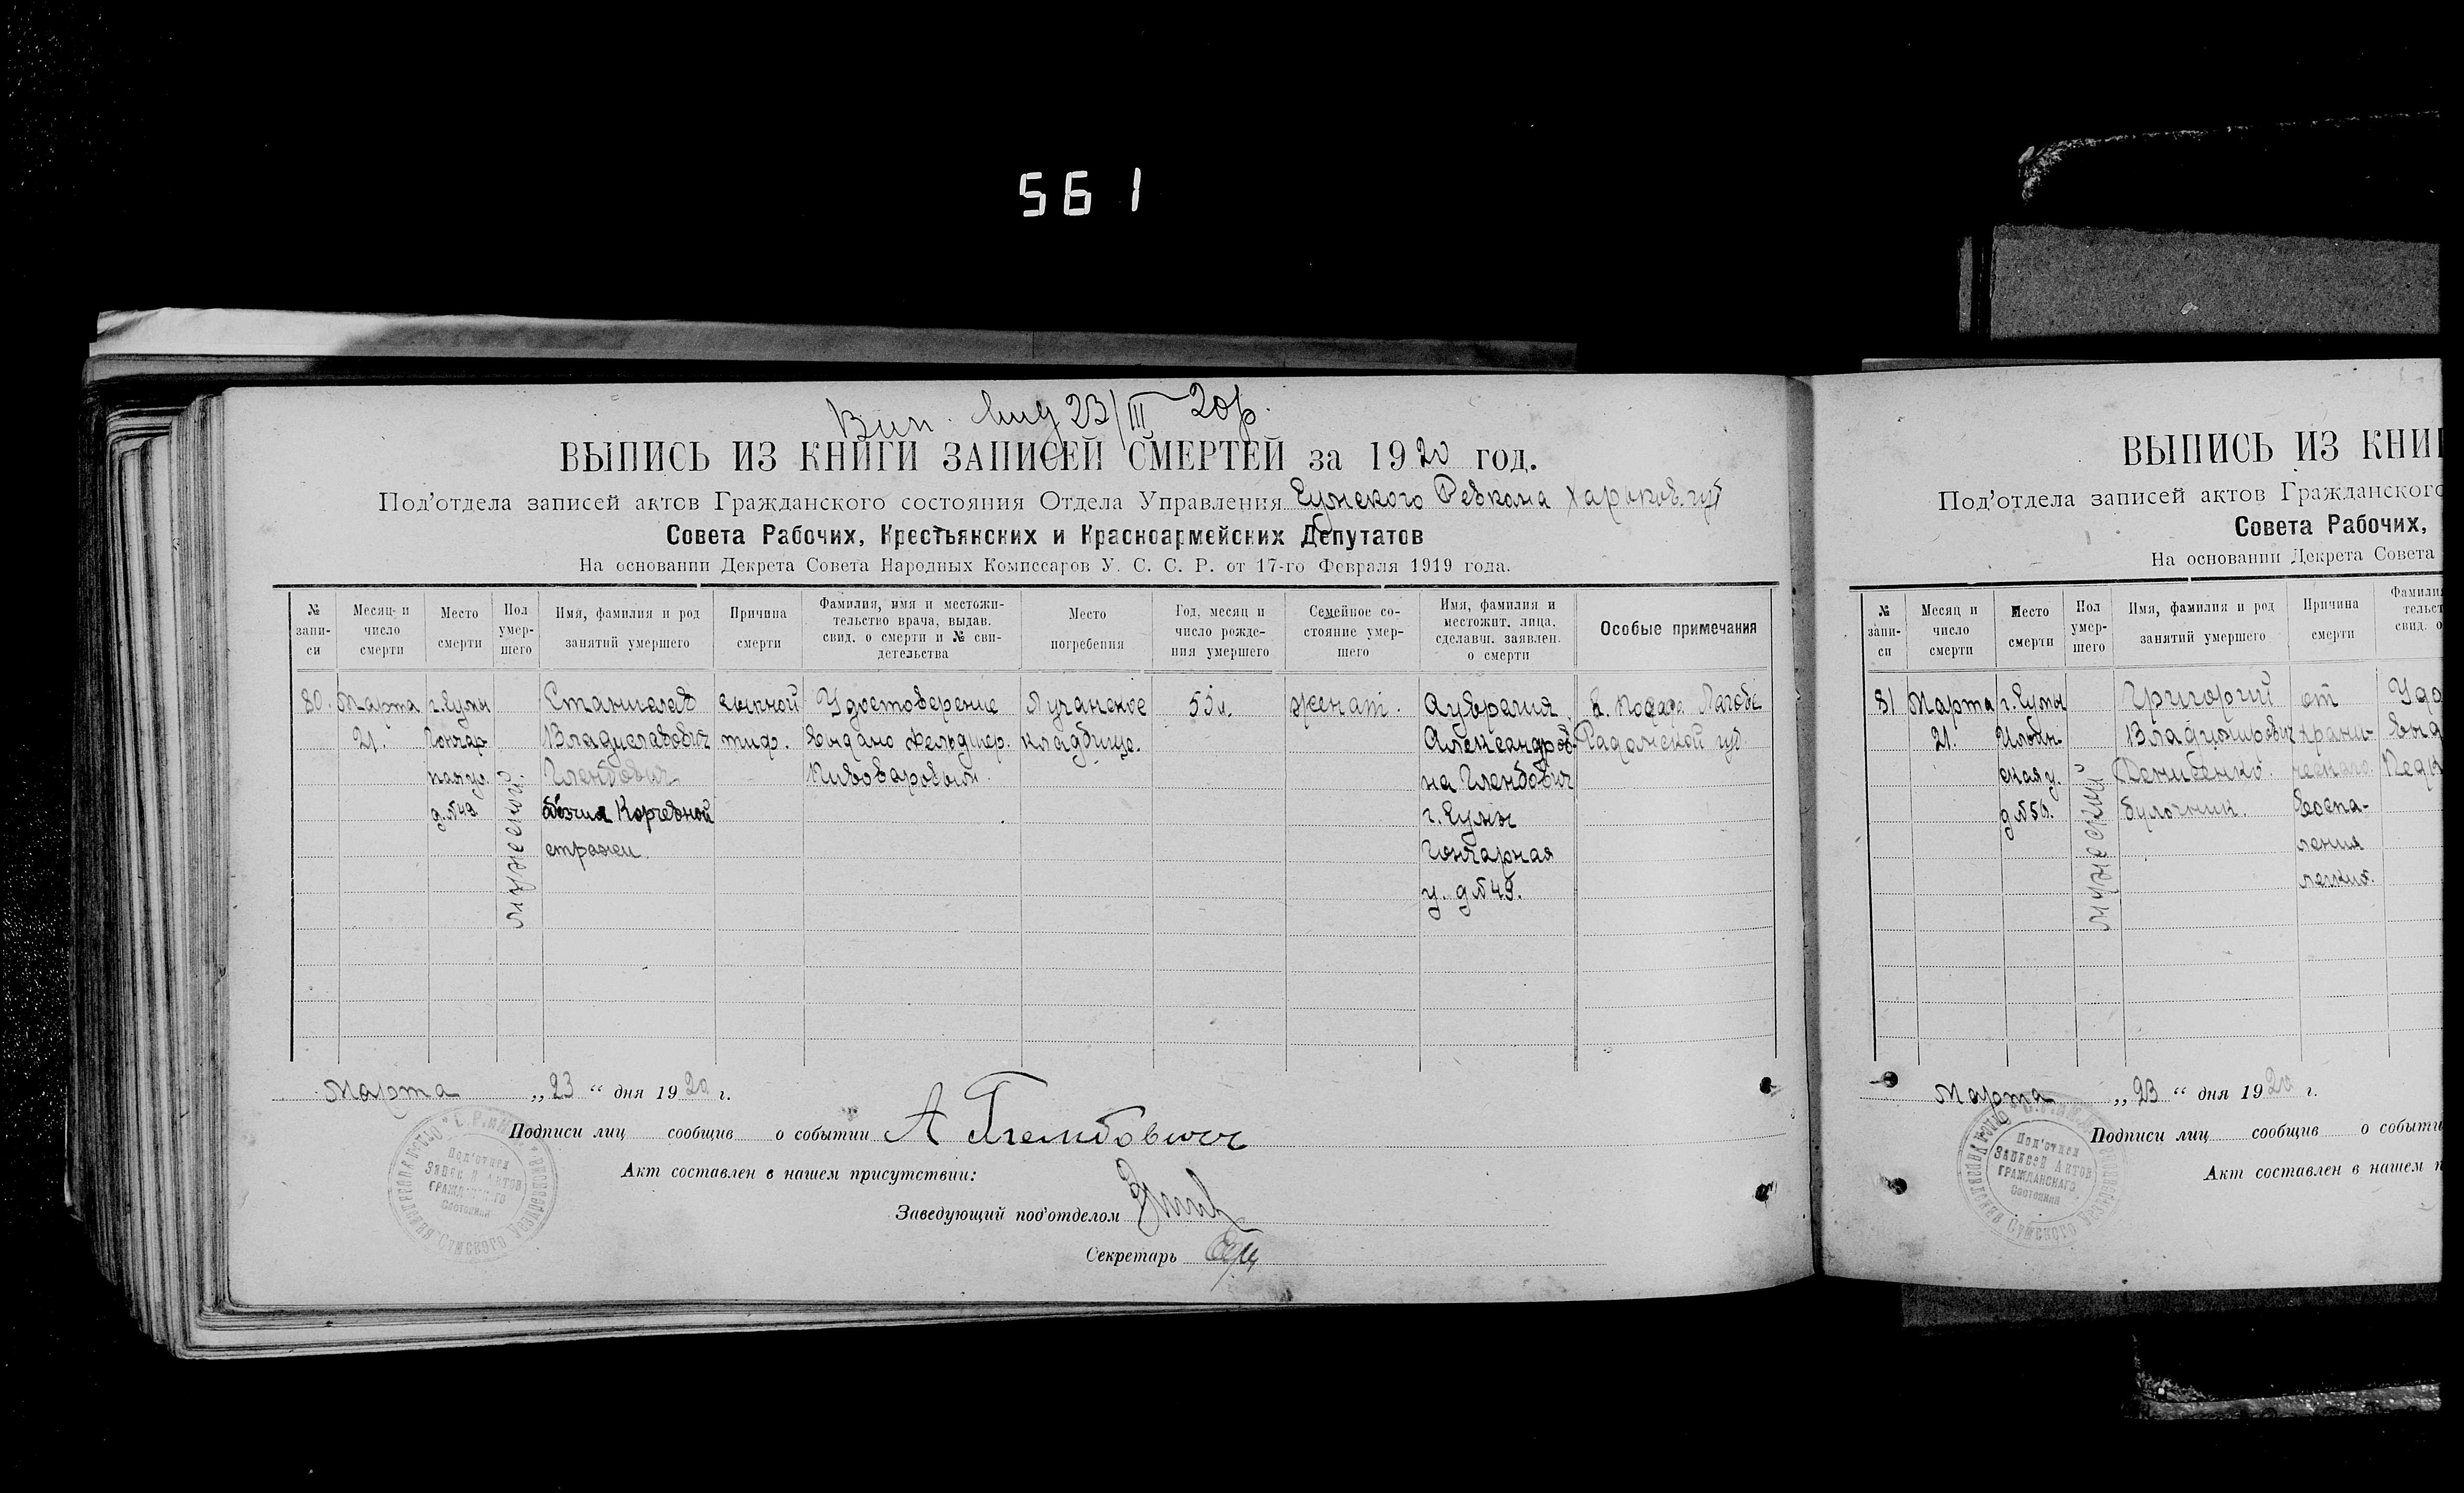 561
Вип. 23/III 20 р.
ВЫПИСЬ ИЗ КНИГИ ЗАПИСЕЙ СМЕРТЕЙ за 1920 год.
Под'отдела записей актов Гражданского состояния Отдела Управления Сумского Ревкома Харьков. губ
Совета Рабочих, Крестьянских и Красноармейских Депутатов
На основании Декрета Совета Народных Комиссаров У. С. С. Р. от 17-го Февраля 1919 года.
№ запи-си
Месяц и число смерти
Место смерти
Пол умер-шего
Имя, фамилия и род занятий умершего
Причина смерти
Фамилия, имя и местожи-тельство врача, выдав. свид. о смерти и № сви-детельства
Место погребения
Год, месяц и число рожде-ния умершего
Семейное со-стояние умер-шего
Имя, фамилия и местожит. лица, сделавш. заявлен. о смерти
Особые примечания
80.
Марта
21.
г. Сумы
Гончар
ная ул.
д. №49.
мужеский.
Станислав
Владиславович
Глембович
стражи.
сыпной
тиф.
Удостоверение
выдано фельдшер.
Пивоваровым.
Лучанское
кладбище.
53 л.
женат.
Александров-
на Глембович
г. Сумы
Гончарная
у. д №49.
Радомской губ
Марта „23“ дня 1920 г.
Подписи лиц сообщив о событии А Глембович
Акт составлен в нашем присутствии:
Заведующий под'отделом
Секретарь
Под'отдел
Записей Актов
Гражданского
Состояния
ВЫПИСЬ ИЗ КНИГ
Под'отдела записей актов Гражданского
Совета Рабочих,
На основании Декрета Совета
№ запи-си
Месяц и число смерти
Место смерти
Пол умер-шего
Имя, фамилия и род занятий умершего
Причина смерти
81
Марта
21.
г. Сумы
Ильин-
ская у.
д №56.
мужеский
Григорий
Владимирович
булочник.
от
хрони-
ческаго
воспа-
ления
легких.
Удо
выд
Марта „23“ дня 1920 г.
Подписи лиц сообщив о событи
Акт составлен в нашем п
Под'отдел
Записей Актов
Гражданскаго
Состояния